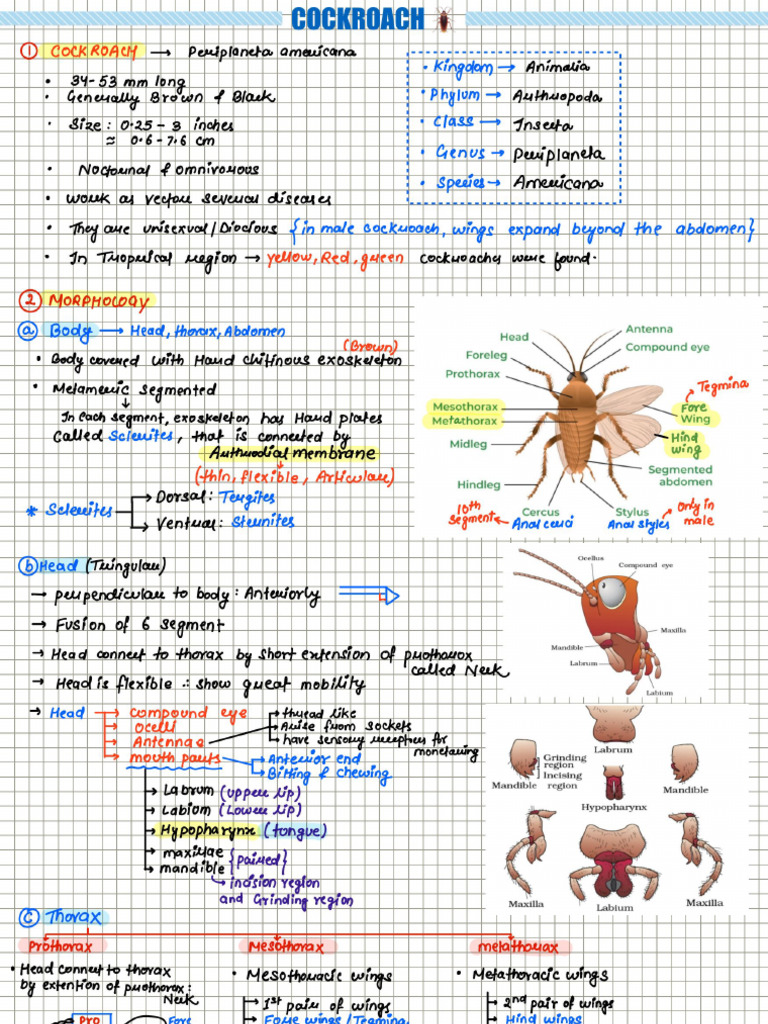 COCKROACH
① COCKROACH → Periplaneta americana
• 34-53 mm long
• Generally Brown & Black
• Size: 0.25 - 3 inches
≈ 0.6-7.6 cm
• Nocturnal & omnivorous
• work as vector several diseases
• They are unisexual/Diocious {in male cockroach, wings expand beyond the abdomen}
• In Tropical region → yellow, Red, green cockroaches were found.
• Kingdom → Animalia
• Phylum → Arthropoda
• Class → Insecta
• Genus → Periplaneta
• Species → Americana
② MORPHOLOGY
ⓐ Body → Head, thorax, Abdomen
• Body covered with Hard chitinous exoskeleton (Brown)
• Metameric segmented
↓
In each segment, exoskeleton has Hard plates
called Sclerites, that is connected by
Arthrodial membrane
(thin, flexible, Articular)
* Sclerites → Dorsal: Tergites
→ Ventral: Sternites
Head
Foreleg
Prothorax
Mesothorax
Metathorax
Midleg
Hindleg
Cercus
10th segment ← Anal cerci
Antenna
Compound eye
Tegmina
Fore Wing
Hind wing
Segmented abdomen
Stylus
Anal styles → Only in male
ⓑ Head (Tringular)
→ perpendicular to body: Anteriorly
→ Fusion of 6 segment
→ Head connect to thorax by short extension of prothorox
called Neck
→ Head is flexible ∴ show great mobility
→ Head → compound eye
→ ocelli
→ Antennae → thread like
→ Arise from sockets
→ have sensory receptors for
monetaring
→ mouth parts → Anterior end
→ Bitting & chewing
→ Labrum (upper lip)
→ Labium (Lower lip)
→ Hypopharynx (tongue)
→ maxillae
→ mandible {paired}
↳ incision region
and Grinding region
Ocellus
Compound eye
Maxilla
Mandible
Labrum
Labium
Labrum
Grinding region
Incising region
Mandible
Mandible
Hypopharynx
Maxilla
Labium
Maxilla
ⓒ Thorax
Prothorax
Mesothorax
metathorax
• Head connect to thorax
by extention of prothorax:
Neck
Pro
Fore
• Mesothoracic wings
→ 1st pair of wings
→ Fore wings / Tegmina
• Metathoracic wings
→ 2nd pair of wings
→ Hind wings